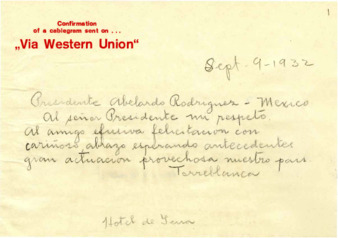 1
Confirmation
of a cablegram sent on ...
„Via Western Union“
Sept. 9-1932
Presidente Abelardo Rodriguez - Mexico
Al señor Presidente mi respeto.
Al amigo efusiva felicitacion con
cariñoso abrazo esperando antecedentes
gran actuacion provechosa nuestro pais.
Torreblanca
Hotel de